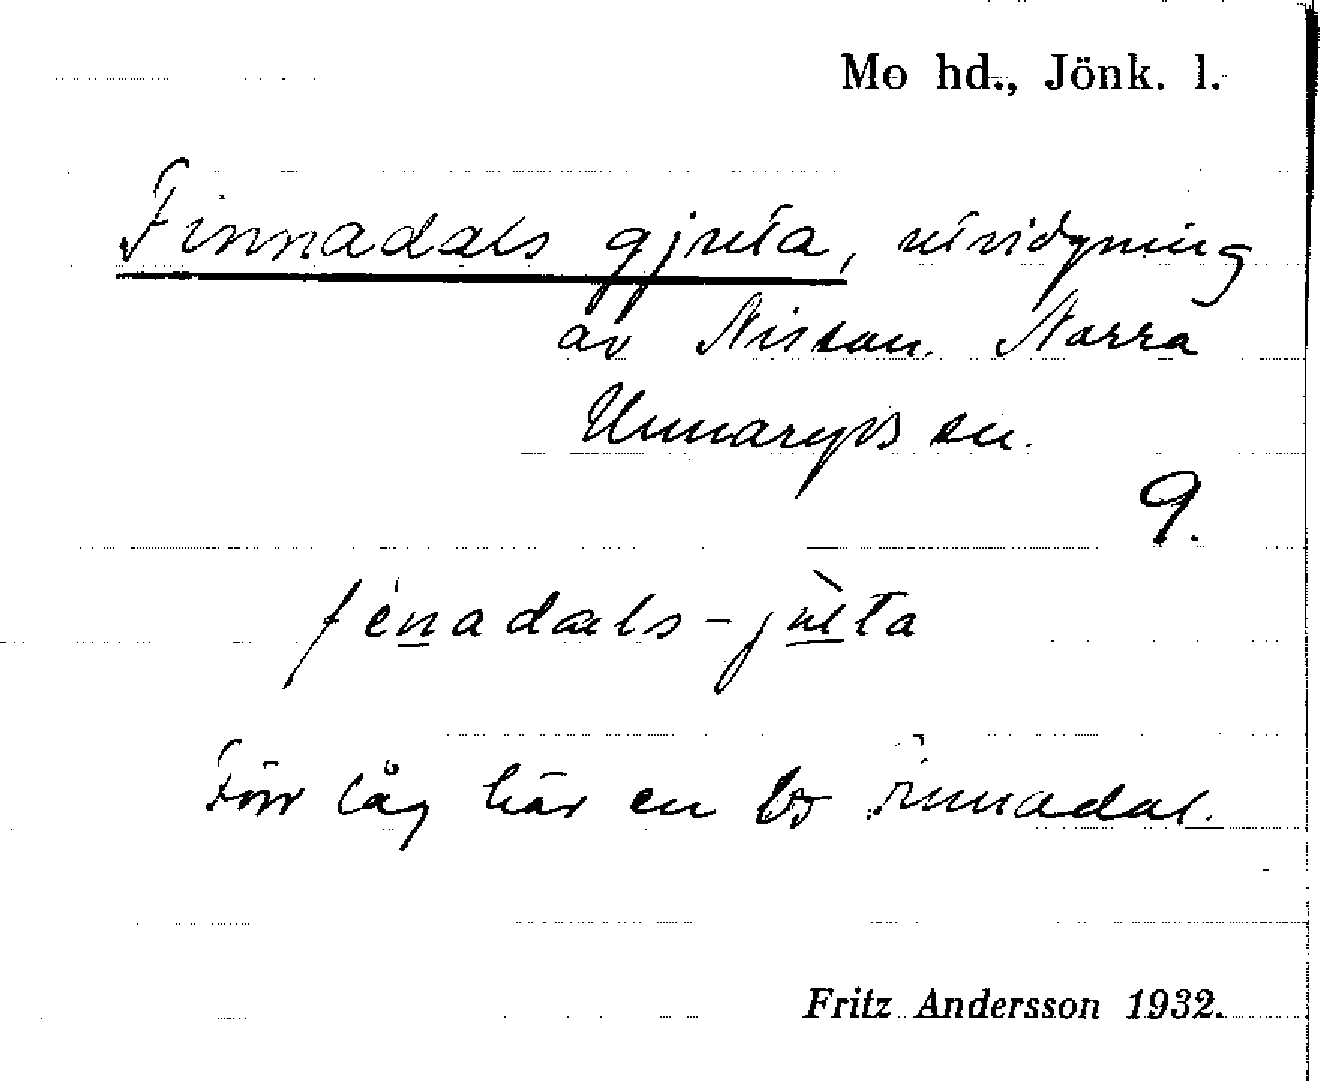 Mo hd., Jönk. l.
Finnadals gjuta, utvidgning
av Nissan. Norra
Unnaryds sn.
9.
fenadals-jùta
Förr låg här en by Finnadal.
Fritz Andersson 1932.